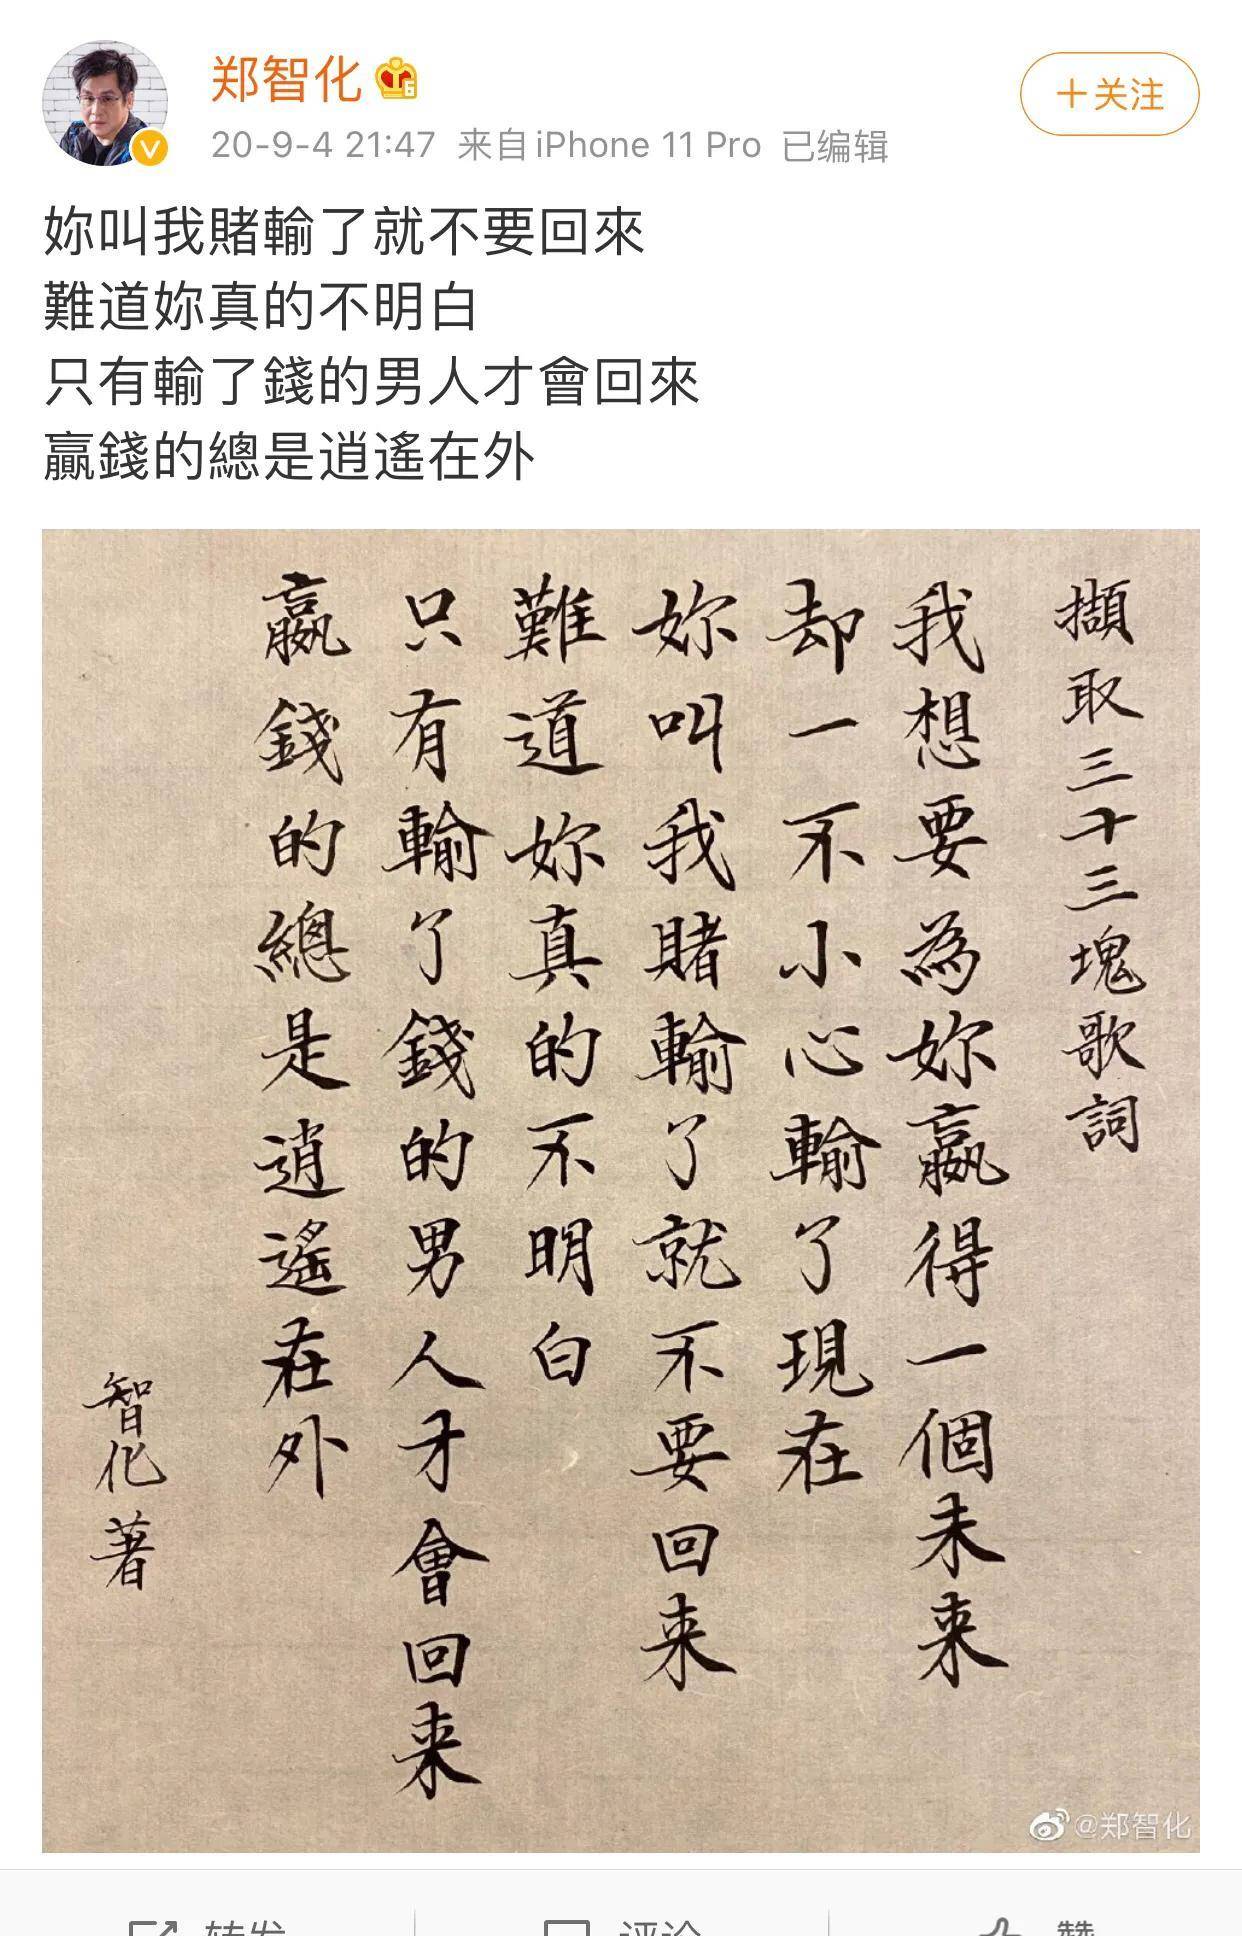 郑智化
+关注
20-9-4 21:47 来自 iPhone 11 Pro 已编辑
妳叫我賭輸了就不要回來
難道妳真的不明白
只有輸了錢的男人才會回來
贏錢的總是逍遙在外
擷取三十三塊歌詞
我想要為妳嬴得一個未来
却一不小心輸了現在
妳叫我賭輸了就不要回来
難道妳真的不明白
只有輸了錢的男人才會回来
嬴錢的總是逍遙在外
智化著
@郑智化
转发
评论
赞